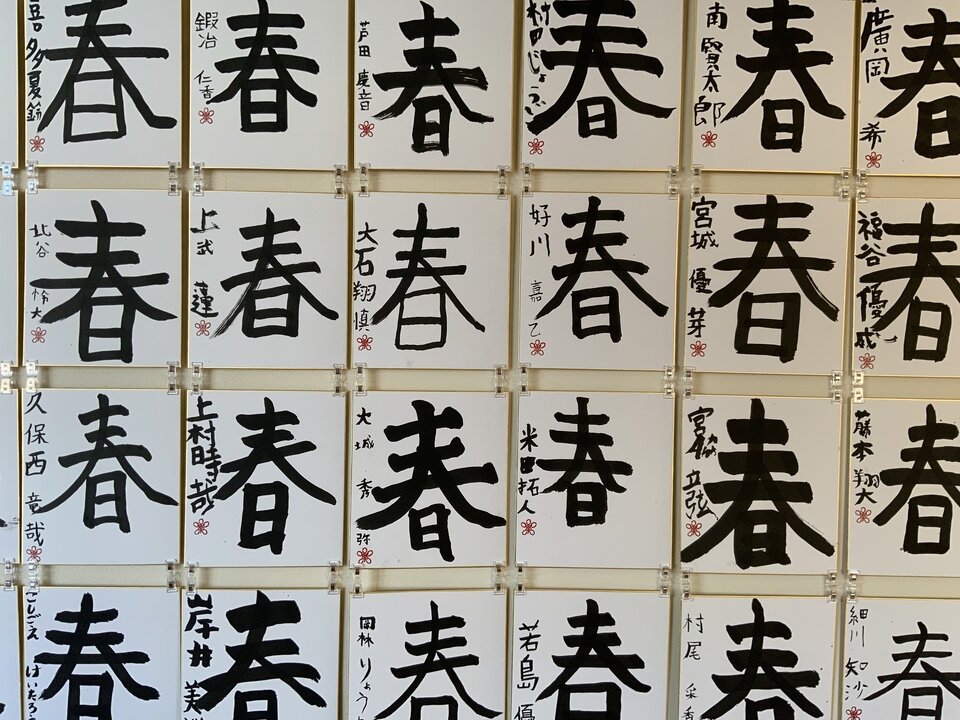 春
喜多夏鈴
春
鍛冶 仁香
春
芦田 慶音
春
春
南 賢太郎
春
廣岡 希
春
北谷 怜大
春
上武 蓮
春
大石翔慎
春
好川 嘉乙
春
宮城 優芽
春
福谷優成
春
久保西 竜哉
春
上村時哉
春
大城 秀弥
春
米田拓人
春
宮脇立弦
春
藤本翔大
春
こしごえ はいたろう
春
岸井 美
春
りょう
春
若島 優
春
村尾 采香
春
細川 知沙